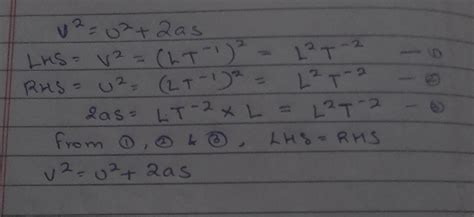 v² = u² + 2as
LHS = v² = (LT⁻¹)² = L²T⁻² — ①
RHS = u² = (LT⁻¹)² = L²T⁻² — ②
2as = LT⁻² × L = L²T⁻² — ③
From ①, ② & ③, LHS = RHS
v² = u² + 2as